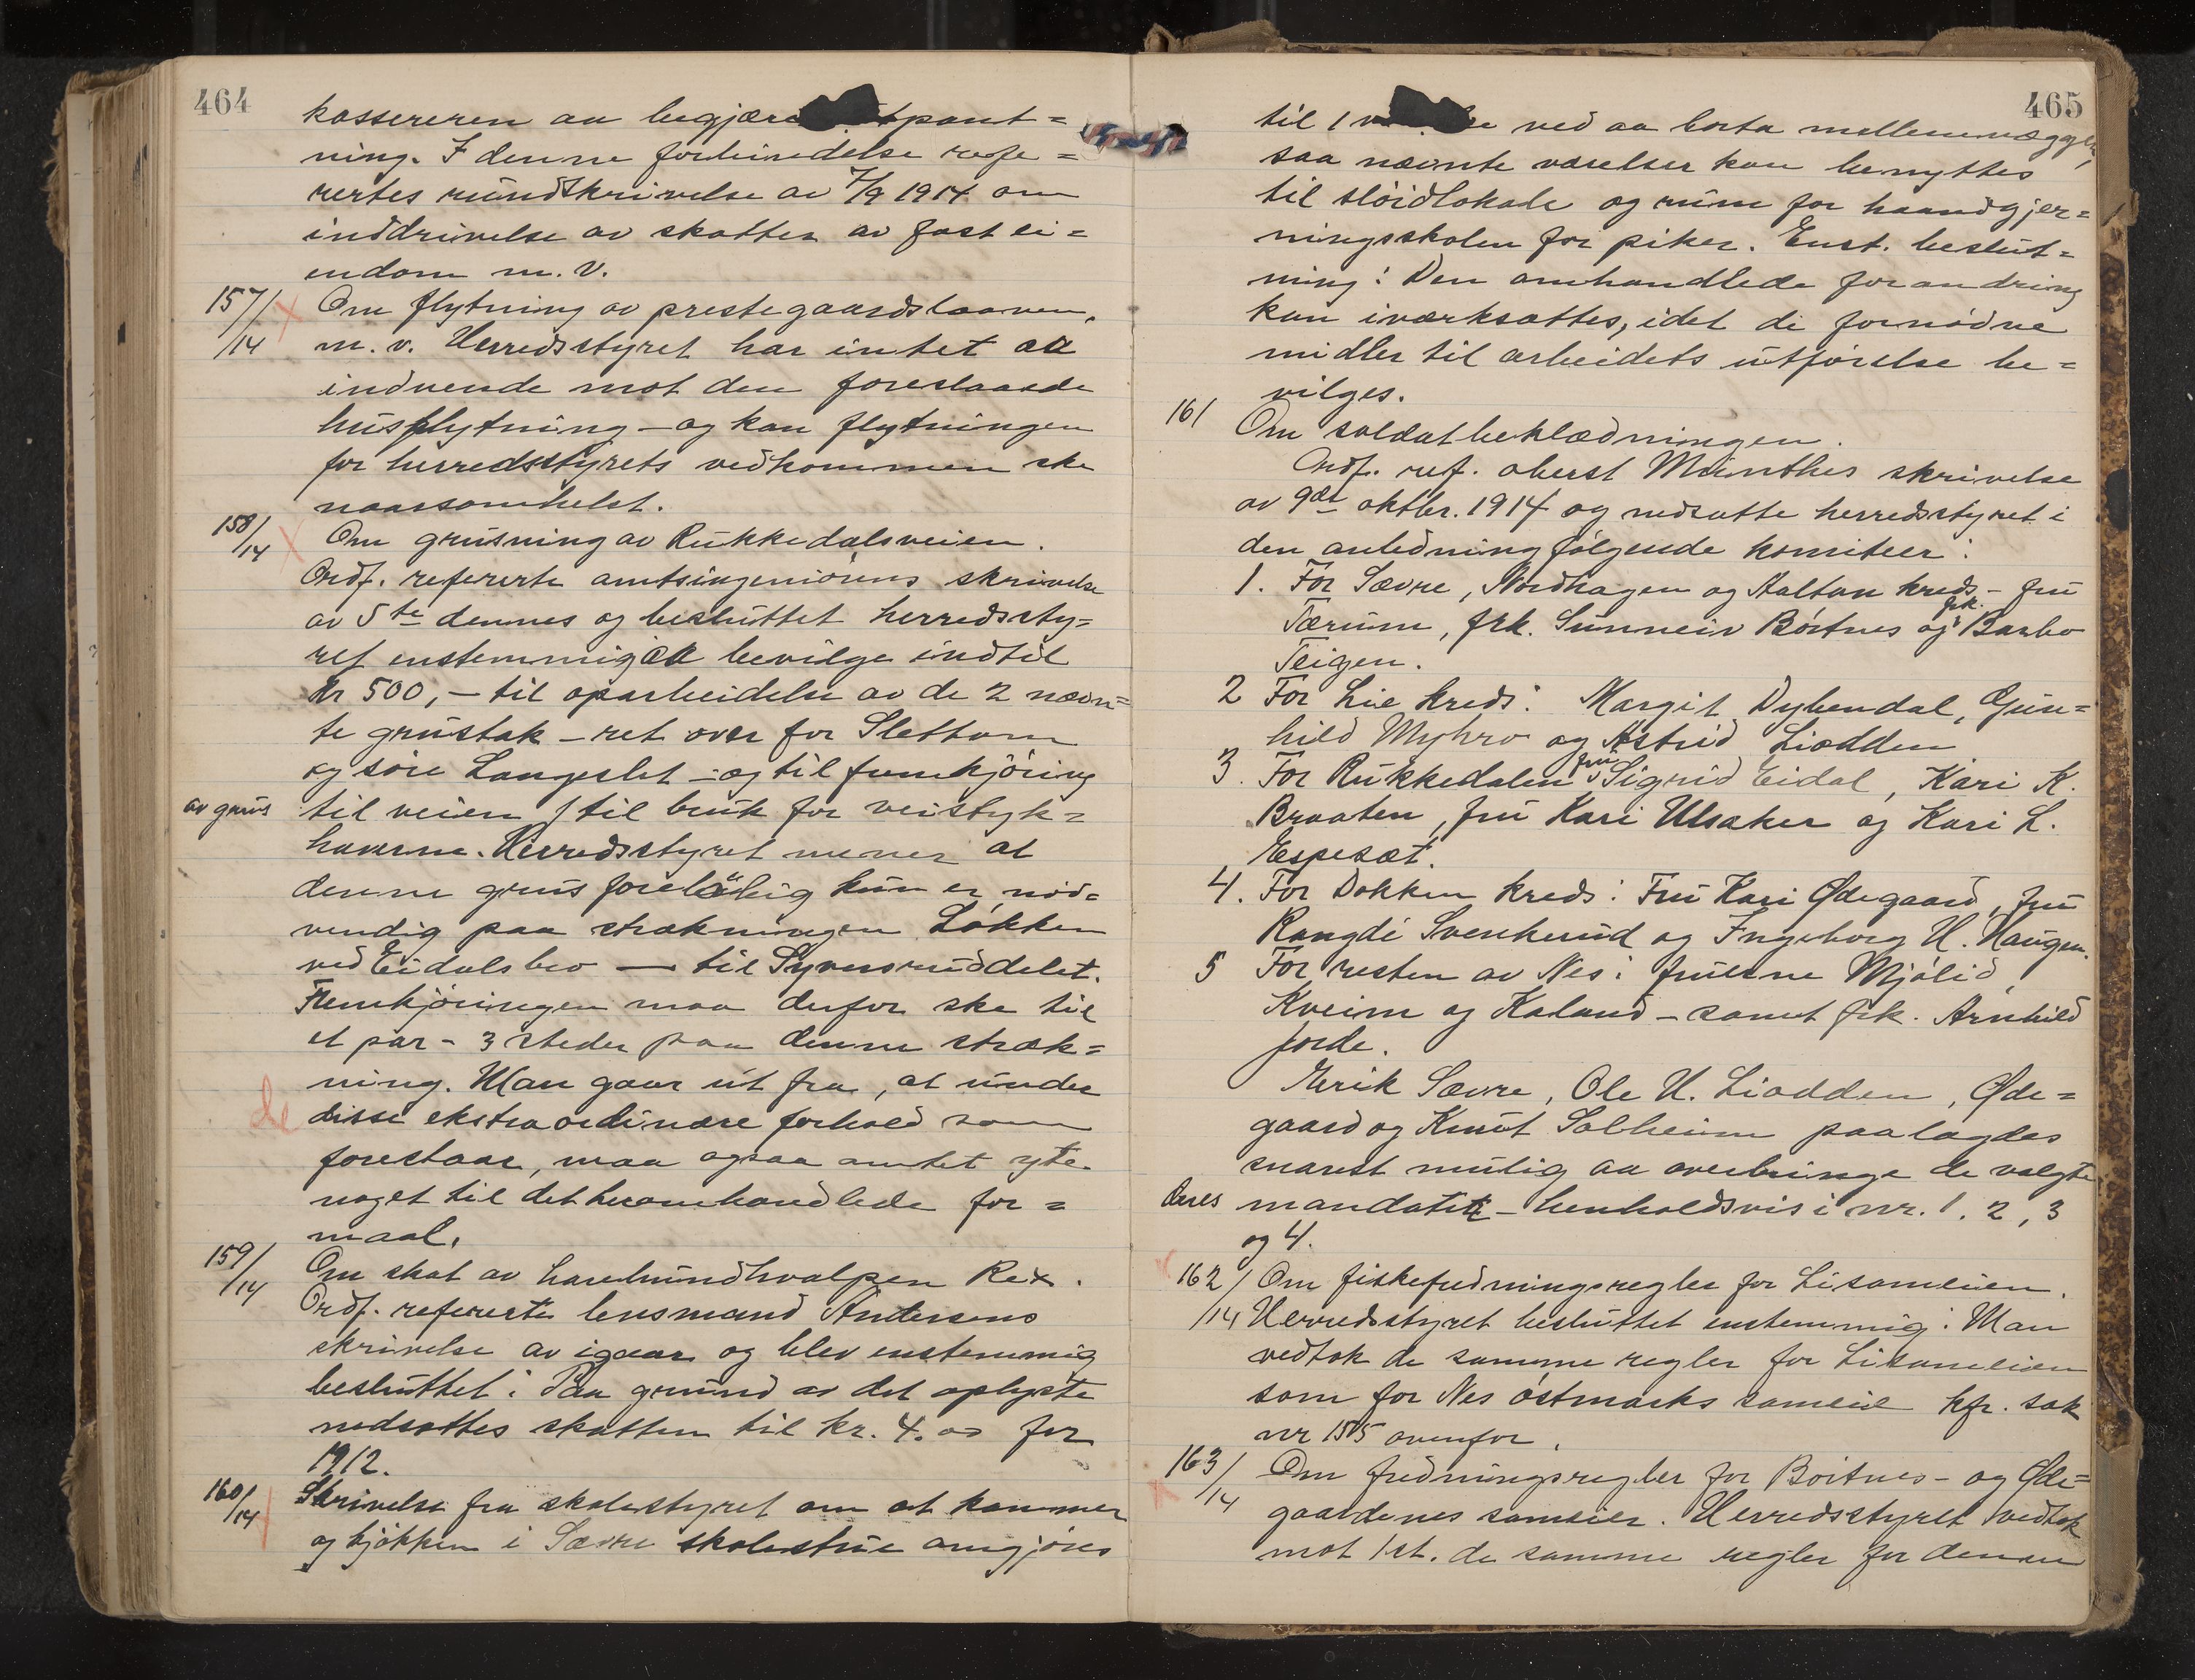 464
kassereren aa begjære utpant=
ning. I denne forbindelse refe=
rertes rundskrivelse av 7/9 1914 om
inddrivelse av skatter av fast ei=
endom m.v.
157/14 Om flytning av prestegaardslaaven,
m.v. Herredsstyret har intet aa
indvende mot den foreslaaede
husflytning – og kan flytningen
for herredsstyrets vedkommen ske
naarsomhelst.
158/14 Om grusning av Rukkedalsveien.
Ordf. refererte amtsingeniørens skrivelse
av 5te dennes og besluttet herredssty=
ret enstemmig aa bevilge indtil
Kr 500,– til oparbeidelse av de 2 nævn=
te grustak – ret over for Slettom
og søre Langeslet – og til fremkjøring
av grus til veien / til bruk for veistyk=
haverne. Herredsstyret mener at
denne grus foreløbig kun er nød=
vendig paa strækningen Løkken
ved Eidalsbro – til Syversruddelet.
Fremkjøringen maa derfor ske til
et par - 3 steder paa denne stræk=
ning. Man gaar ut fra, at under
de disse ekstraordinære forhold som
forestaar, maa ogsaa amtet yte
noget til det heromhandlede for=
maal.
159/14 Om skat av harehundhvalpen Rex.
Ordf. refererte lensmand Andersens
skrivelse av igaar og blev enstemmig
besluttet: Paa grund av det oplyste
nedsættes skatten til kr. 4.00 for
1912.
160/14 Skrivelse fra skolestyret om at kammer
og kjøkken i Sævre skolestue omgjøres
465
til 1 ved aa borta mellemvæggen,
saa nævnte værelser kan benyttes
til sløidlokale og rum for haandgjer=
ningsskolen for piker. Enst. beslut=
ning: Den omhandlede forandring
kan iværksættes, idet de fornødne
midler til arbeidets utførelse be=
vilges.
161 Om soldatbeklædningen.
Ordf. ref. oberst Münthes skrivelse
av 9de oktbr. 1914 og nedsatte herredsstyret i
den anledning følgende komiteer:
1. For Sævre, Nordhagen og Aaltvn kreds – fru
Tærum, frk. Sunneiv Børtnes og frk. Barbo
Teigen.
2 For Lie kreds: Margit Dybendal, Gun=
hild Myhro og Astrid Liodden
3. For Rukkedalen fru Sigrid Eidal, Kari K.
Braaten, fru Kari Ulsaker og Kari L.
Espesæt.
4. For Dokken kreds: Fru Kari Ødegaard, fru
Rangdi Svenkerud og Ingeborg H. Haugen.
5 For resten av Nes: fruerne Mjølid,
Kveim og Kaland – samt frk. Arnhild
Jorde.
Eirik Sævre, Ole H. Liodden, Øde=
gaard og Knut Solheim paalagdes
snarest mulig aa overbringe de valgte
deres mandater – henholdsvis i nr. 1, 2, 3
og 4.
162/14 Om fiskefredningsregler for Lisameien.
Herredsstyret besluttet enstemmig: Man
vedtok de samme regler for Lisameien
som for Nes østmarks sameie kfr. sak
nr 155 ovenfor.
163/14 Om fredningsregler for Børtnes- og Øde=
gaardenes sameier. Herredsstyret vedtok
mot 1 st. de samme regler for denne